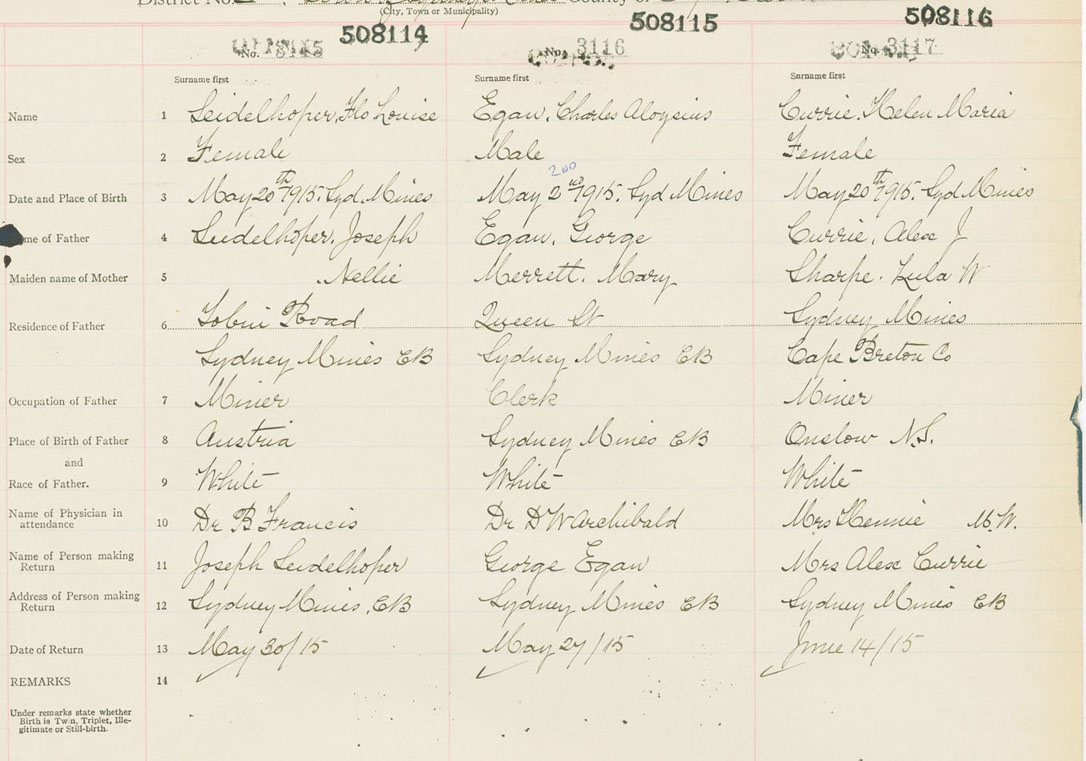 District No. County of
(City, Town or Municipality)
508114 508115 508116
No. 3115 No. 3116 No. 3117
Surname first Surname first Surname first
Name 1 Seidelhoper, Flo Louise Egan, Charles Aloysius Currie, Helen Maria
Sex 2 Female Male Female
2ND
Date and Place of Birth 3 May 20th 1915. Syd. Mines May 2nd 1915. Syd Mines May 20th 1915. Syd Mines
Name of Father 4 Seidelhoper, Joseph Egan, George Currie, Alex J
Maiden name of Mother 5 . Nellie Merrett. Mary Sharpe. Lula W
Residence of Father 6 Road Queen St Sydney Mines
Sydney Mines CB Sydney Mines CB Cape Breton Co
Occupation of Father 7 Miner Clerk Miner
Place of Birth of Father 8 Austria Sydney Mines CB Onslow N.S.
and
Race of Father. 9 White White White
Name of Physician in
attendance 10 Dr B Francis Dr D W Archibald Mrs M.W.
Name of Person making
Return 11 Joseph Seidelhoper George Egan Mrs Alex Currie
Address of Person making
Return 12 Sydney Mines, CB Sydney Mines CB Sydney Mines CB
Date of Return 13 May 30/15 May 27/15 June 14/15
REMARKS 14
Under remarks state whether
Birth is Twin, Triplet, Ille-
gitimate or Still-birth.